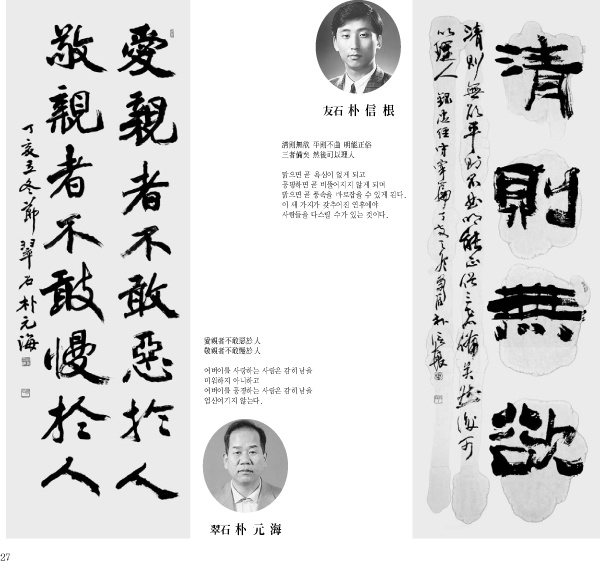 愛親者不敢惡於人
敬親者不敢慢於人
丁亥立冬節 翠石朴元海
友石 朴信根
淸則無欲 平則不曲 明能正俗
三者備矣 然後可以理人
맑으면 곧 욕심이 없게 되고
공평하면 곧 비뚤어지지 않게 되며
밝으면 곧 풍속을 바로잡을 수 있게 된다.
이 세 가지가 갖추어진 연후에야
사람들을 다스릴 수가 있는 것이다.
愛親者不敢惡於人
敬親者不敢慢於人
어버이를 사랑하는 사람은 감히 남을
미워하지 아니하고
어버이를 공경하는 사람은 감히 남을
업신여기지 않는다.
翠石 朴元海
淸則無欲
淸則無欲平則不曲明能正俗三者備矣然後可
以理人
27